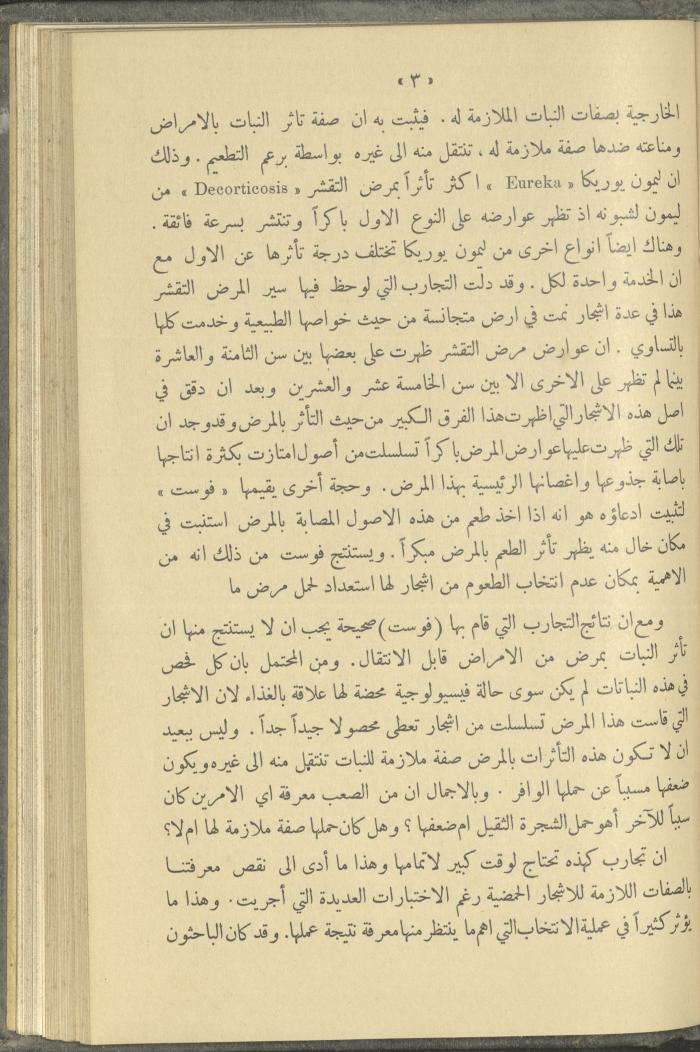 « ٣ »
الخارجية بصفات النبات الملازمة له . فيثبت به ان صفة تاثر النبات بالامراض
ومناعته ضدها صفة ملازمة له ، تنتقل منه الى غيره بواسطة برعم التطعيم . وذلك
ان ليمون يوريكا « Eureka » اكثر تأثراً بمرض التقشر « Decorticosis » من
ليمون لشبونه اذ تظهر عوارضه على النوع الاول باكراً وتنتشر بسرعة فائقة .
وهناك ايضاً انواع اخرى من ليمون يوريكا تختلف درجة تأثرها عن الاول مع
ان الخدمة واحدة لكل . وقد دلّت التجارب التي لوحظ فيها سير المرض التقشر
هذا في عدة اشجار نمت في ارض متجانسة من حيث خواصها الطبيعية وخدمت كلها
بالتساوي . ان عوارض مرض التقشر ظهرت على بعضها بين سن الثامنة والعاشرة
بينما لم تظهر على الاخرى الا بين سن الخامسة عشر والعشرين وبعد ان دقق في
اصل هذه الاشجار التي اظهرت هذا الفرق الكبير من حيث التأثر بالمرض وقد وجد ان
تلك التي ظهرت عليها عوارض المرض باكراً تسلسلت من أصول امتازت بكثرة انتاجها
باصابة جذوعها واغصانها الرئيسية بهذا المرض . وحجة أخرى يقيمها « فوست »
لتثبيت ادعاؤه هو انه اذا اخذ طعم من هذه الاصول المصابة بالمرض استنبت في
مكان خال منه يظهر تأثر الطعم بالمرض مبكراً . ويستنتج فوست من ذلك انه من
الاهمية بمكان عدم انتخاب الطعوم من اشجار لها استعداد لحمل مرض ما
ومع ان نتائج التجارب التي قام بها ( فوست ) صحيحة يجب ان لا يستنتج منها ان
تأثر النبات بمرض من الامراض قابل الانتقال . ومن المحتمل بان كل فحص
في هذه النباتات لم يكن سوى حالة فيسيولوجية محضة لها علاقة بالغذاء لان الاشجار
التي قاست هذا المرض تسلسلت من اشجار تعطى محصولا جيداً جداً . وليس ببعيد
ان لا تكون هذه التأثرات بالمرض صفة ملازمة للنبات تنتقل منه الى غيره ويكون
ضعفها مسبباً عن حملها الوافر . وبالاجمال ان من الصعب معرفة اي الامرين كان
سبباً للآخر أهو حمل الشجرة الثقيل ام ضعفها ؟ وهل كان حملها صفة ملازمة لها ام لا؟
ان تجارب كهذه تحتاج لوقت كبير لاتمامها وهذا ما أدى الى نقص معرفتنا
بالصفات اللازمة للاشجار الحمضية رغم الاختبارات العديدة التي أجريت . وهذا ما
يؤثر كثيراً في عملية الانتخاب التي اهم ما ينتظر منها معرفة نتيجة عملها. وقد كان الباحثون